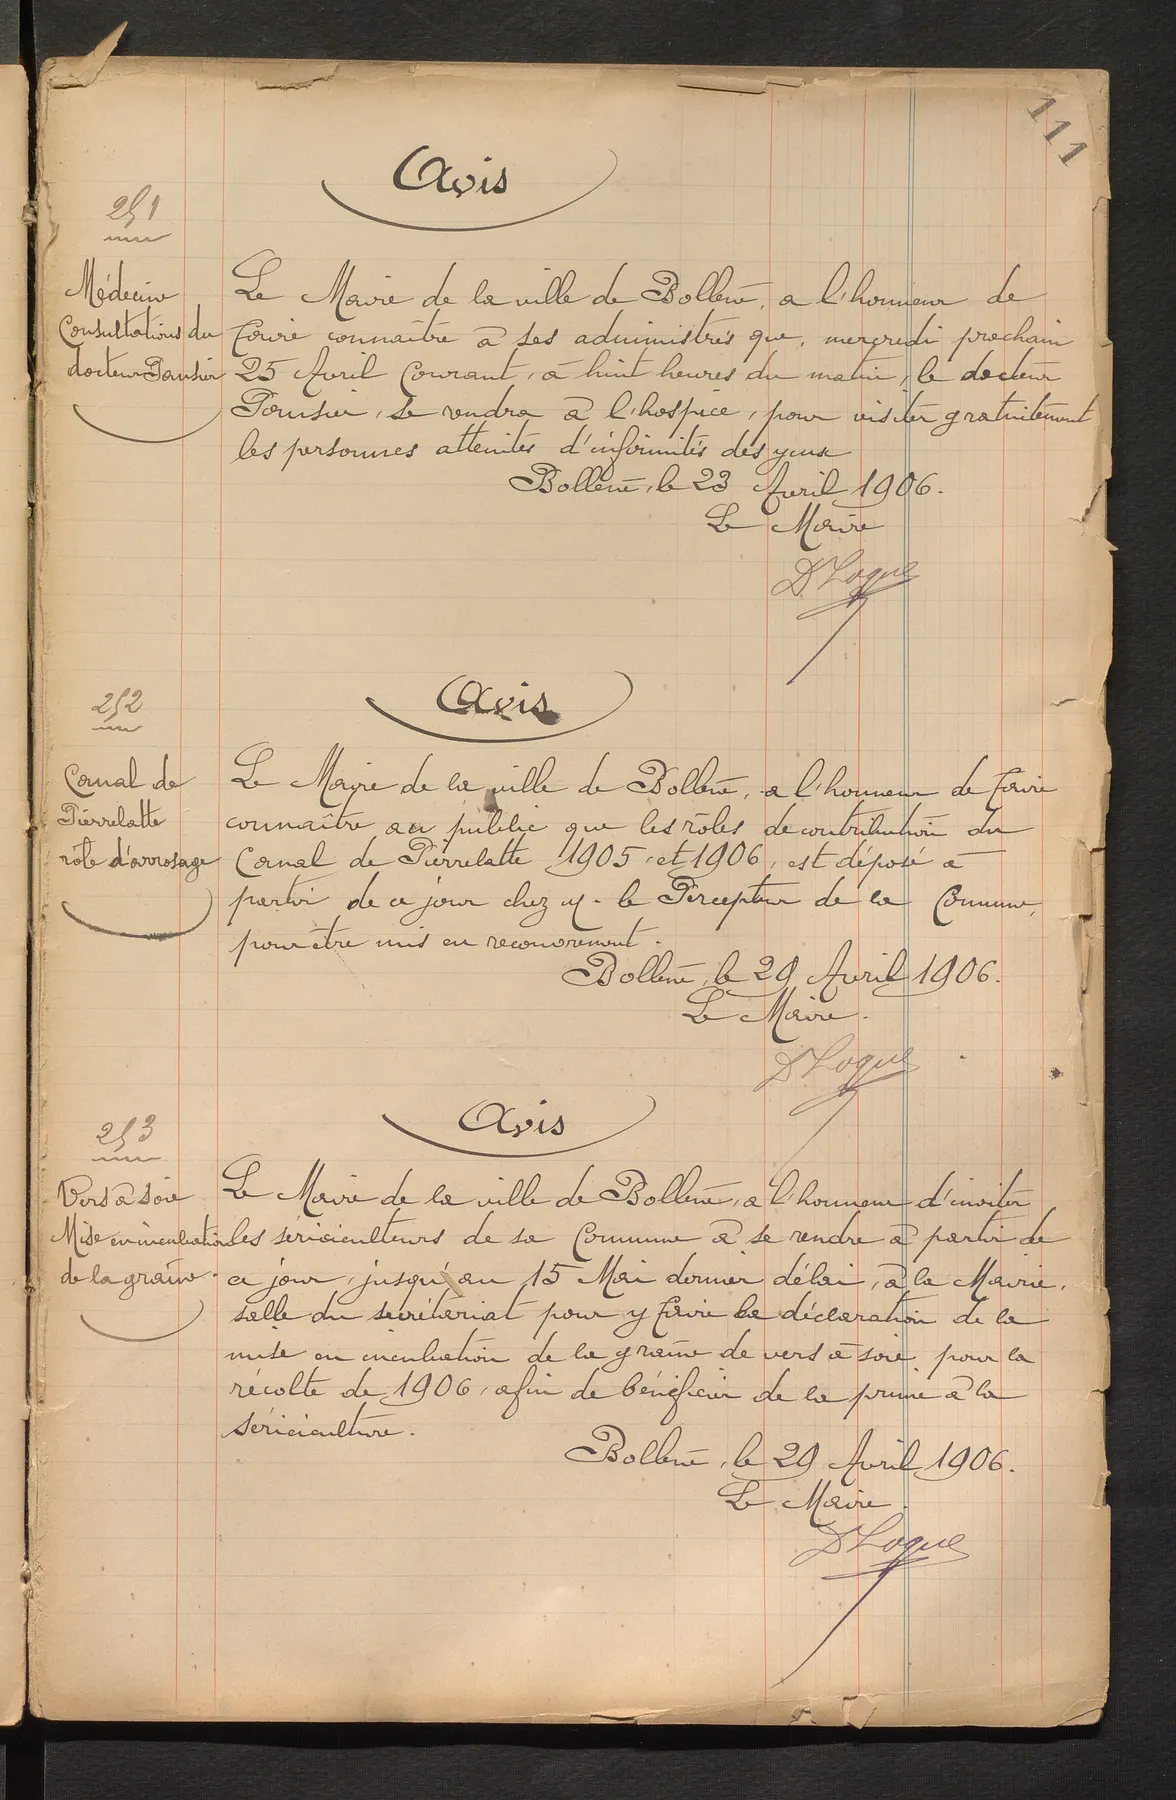 111
Avis
251
Médecine
Consultations du
docteur Pansier
Le Maire de la ville de Bollène, a l'honneur de
faire connaître à ses administrés que, mercredi prochain
25 Avril Courant, à huit heures du matin, le docteur
Pansier, se rendra à l'hospice, pour visiter gratuitement
les personnes atteintes d'infirmités des yeux
Bollène, le 23 Avril 1906.
Le Maire
Dr Loque
Avis
252
Canal de
Pierrelatte
rôle d'arrosage
Le Maire de la ville de Bollène, a l'honneur de faire
connaître au public que les rôles de contribution du
Canal de Pierrelatte 1905 et 1906, est déposé à
partir de ce jour chez M. le Percepteur de la Commune,
pour être mis en recouvrement.
Bollène, le 29 Avril 1906.
Le Maire.
Dr Loque
Avis
253
Vers à soie
Mise en incubation
de la graine.
Le Maire de la ville de Bollène, a l'honneur d'inviter
les sériciculteurs de sa Commune à se rendre à partir de
ce jour, jusqu'au 15 Mai dernier délai, à la Mairie,
salle du secrétariat pour y faire la déclaration de la
mise en incubation de la graine de vers à soie pour la
récolte de 1906, afin de bénéficier de la prime à la
sériciculture.
Bollène, le 29 Avril 1906.
Le Maire.
Dr Loque